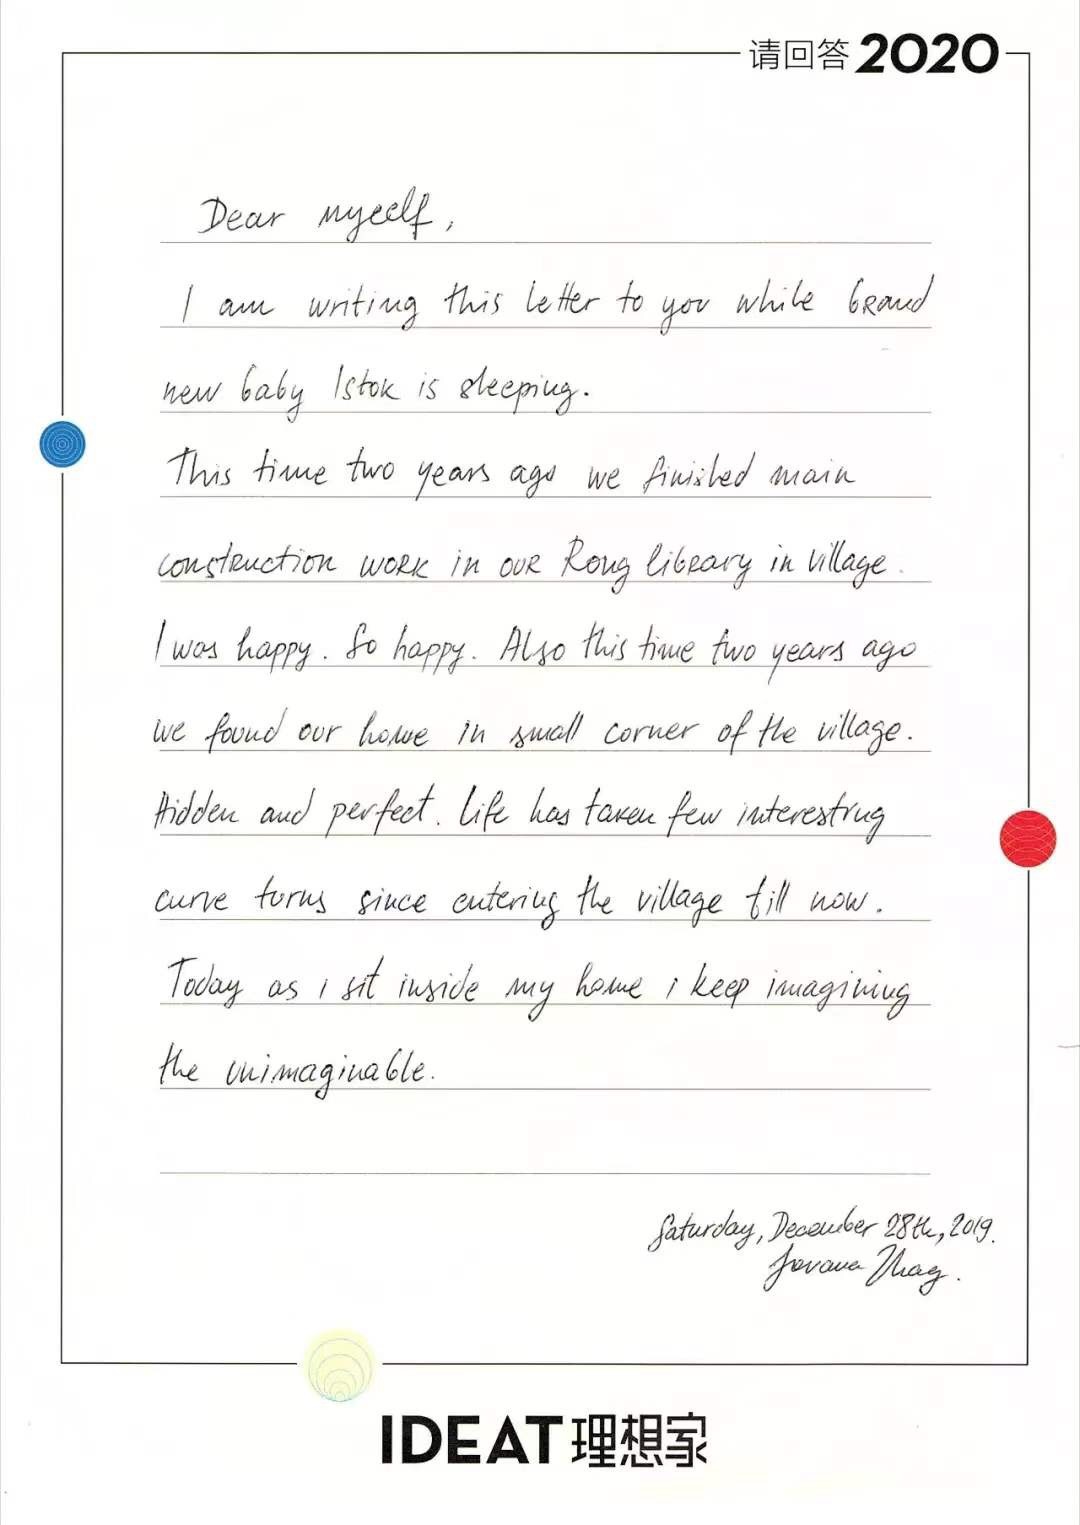 请回答2020
Dear myself,
I am writing this letter to you while brand
new baby Istok is sleeping.
This time two years ago we finished main
construction work in our Rong library in village.
I was happy. So happy. Also this time two years ago
we found our home in small corner of the village.
Hidden and perfect. Life has taken few interesting
curve turns since entering the village till now.
Today as i sit inside my home i keep imagining
the unimaginable.
Saturday, December 28th, 2019.
Jovana
IDEAT理想家